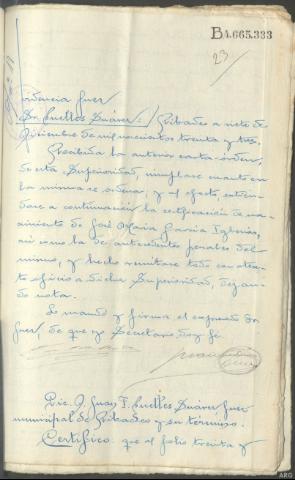 B4.665.333
23
Providencia Juez
Sr. Cuelles Suárez: / Ribadeo a siete de
Diciembre de mil novecientos treinta y tres.
Recibida la anterior carta-orden,
de esta Superioridad, cumplase cuanto en
la misma se ordena; y al efecto, extién-
dase a continuación la certificación de na-
cimiento de José María García Iglesias,
asi como la de antecedentes penales del
mismo, y hecho remitase todo con aten-
to oficio a dicha Superioridad, dejan-
do nota.
Lo mandó y firma el expresado Sr.
Juez, de que yo Secretario doy fe.
Lic. D. Juan F. Cuelles Suárez Juez
municipal de Ribadeo y su término.
Certifico: que al folio treinta y
ARG